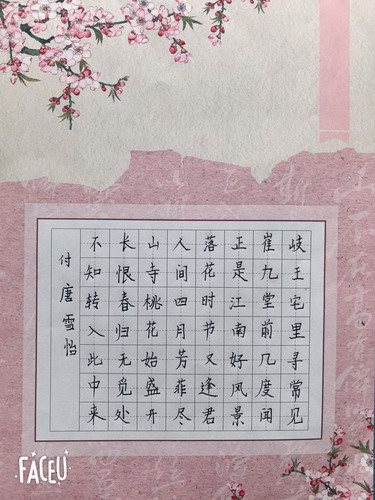 岐王宅里寻常见
崔九堂前几度闻
正是江南好风景
落花时节又逢君
人间四月芳菲尽
山寺桃花始盛开
长恨春归无觅处
不知转入此中来
付唐雪怡
FACEU